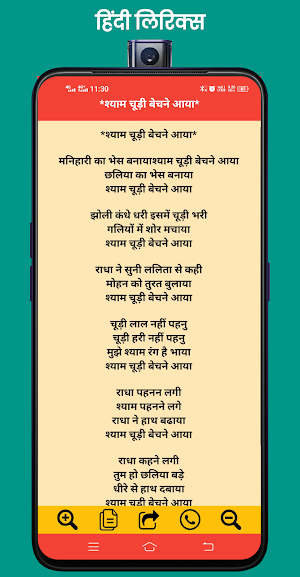 हिंदी लिरिक्स
11:30
*श्याम चूड़ी बेचने आया*
*श्याम चूड़ी बेचने आया*
मनिहारी का भेस बनायाश्याम चूड़ी बेचने आया
छलिया का भेस बनाया
श्याम चूड़ी बेचने आया
झोली कंधे धरी इसमें चूड़ी भरी
गलियों में शोर मचाया
श्याम चूड़ी बेचने आया
राधा ने सुनी ललिता से कही
मोहन को तुरत बुलाया
श्याम चूड़ी बेचने आया
चूड़ी लाल नहीं पहनु
चूड़ी हरी नहीं पहनु
मुझे श्याम रंग है भाया
श्याम चूड़ी बेचने आया
राधा पहनन लगी
श्याम पहनने लगे
राधा ने हाथ बढाया
श्याम चूड़ी बेचने आया
राधा कहने लगी
तुम हो छलिया बड़े
धीरे से हाथ दबाया
श्याम चूड़ी बेचने आया